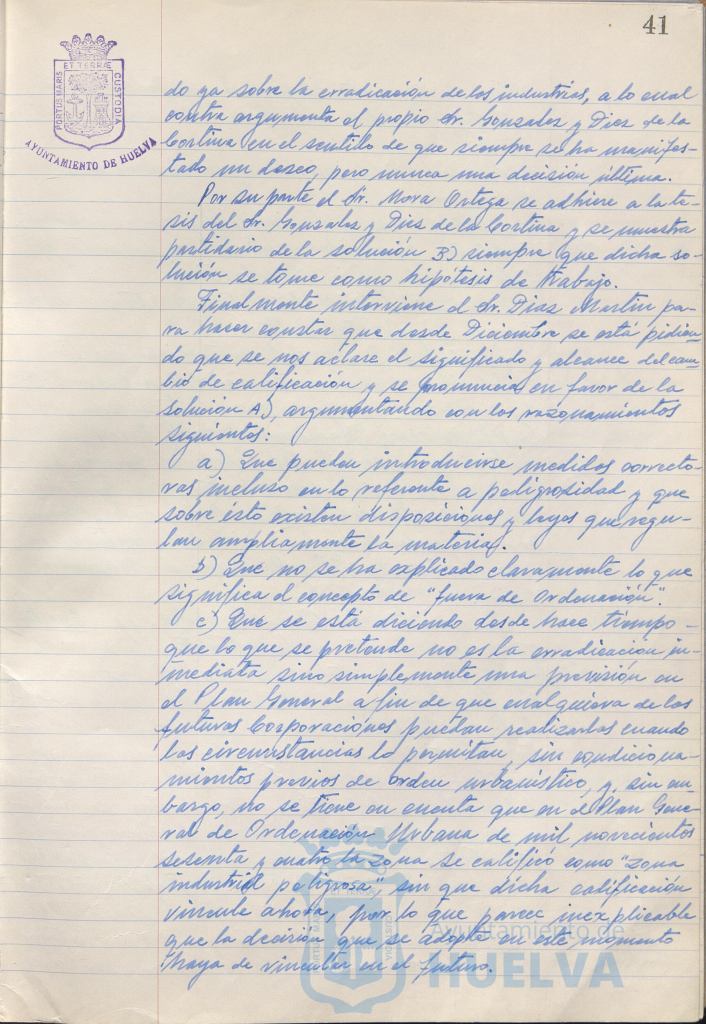 41
PORTUS MARIS ET TERRÆ CUSTODIA
AYUNTAMIENTO DE HUELVA
do ya sobre la erradicación de las industrias, a lo cual
contra argumenta el propio Sr. Gonzalez y Diez de la
Cortina en el sentido de que siempre se ha manifes-
tado un deseo, pero nunca una decisión última.
Por su parte el Sr. Mora Ortega se adhiere a la te-
sis del Sr. Gonzalez y Diez de la Cortina y se muestra
partidario de la solución B) siempre que dicha so-
lución se tome como hipótesis de trabajo.
Finalmente interviene el Sr. Diaz Martin pa-
ra hacer constar que desde Diciembre se está pidien-
do que se nos aclare el significado y alcance del cam-
bio de calificación y se pronuncia en favor de la
solución A), argumentando con los razonamientos
siguientes:
a) Que pueden introducirse medidas correcto-
ras incluso en lo referente a peligrosidad y que
sobre ésto existen disposiciones y leyes que regu-
lan ampliamente la materia.
b) Que no se ha explicado claramente lo que
significa el concepto de "fuera de Ordenación".
c) Que se está diciendo desde hace tiempo -
que lo que se pretende no es la erradicación in-
mediata sino simplemente una previsión en
el Plan General a fin de que cualquiera de las
futuras Corporaciones puedan realizarlas cuando
las circunstancias lo permitan, sin condiciona-
mientos previos de orden urbanístico, y, sin em-
bargo, no se tiene en cuenta que en el Plan Gene-
ral de Ordenación Urbana de mil novecientos
sesenta y cuatro la zona se calificó como "zona
industrial peligrosa", sin que dicha calificación
vincule ahora, por lo que parece inexplicable
que la decisión que se adopte en este momento
haya de vincular en el futuro.
Ayuntamiento de
HUELVA